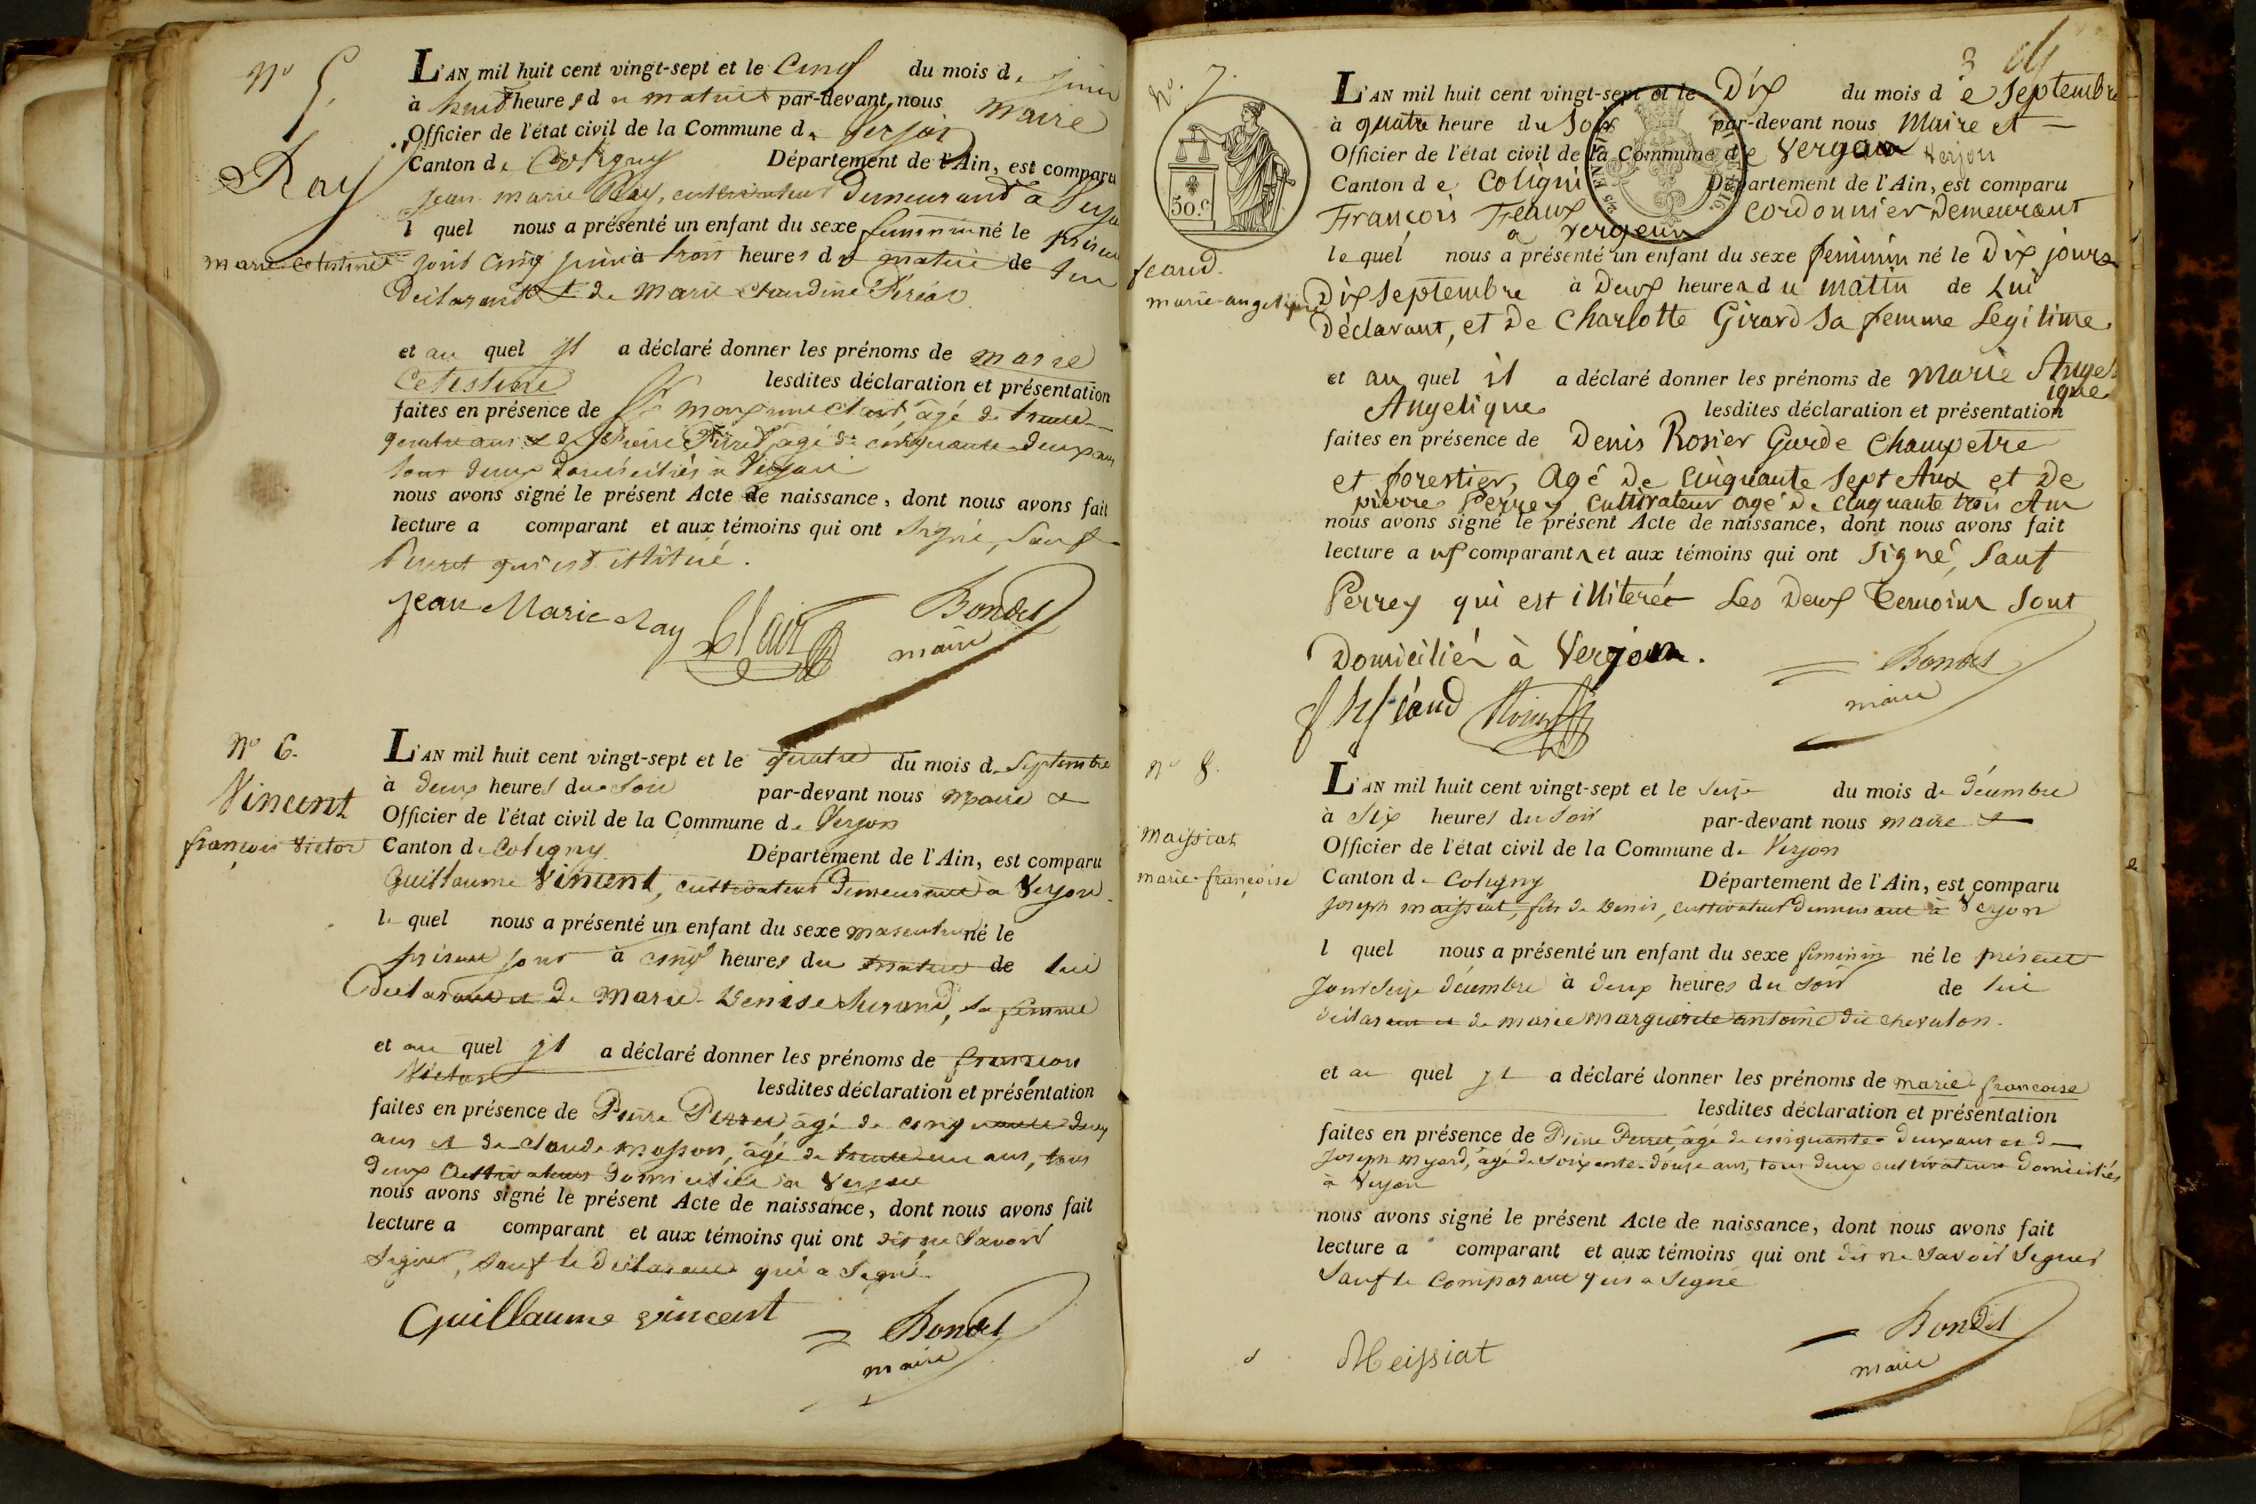 N° 5.
Ray
marie celestine
L'AN mil huit cent vingt-sept et le cinq du mois de juin
à huit heures du matin par-devant nous maire
Officier de l'état civil de la Commune de Verjon
Canton de Coligny Département de l'Ain, est comparu
jean marie Ray, cultivateur demeurant à Verjon
l quel nous a présenté un enfant du sexe feminin né le présent
jour cinq juin à trois heures du matin de lui
déclarant et de marie claudine
et au quel il a déclaré donner les prénoms de marie
Celestine lesdites déclaration et présentation
faites en présence de clair, âgé de trente
quatre ans et de pierre Perret, âgé de cinquante-deux ans
tous deux domiciliés à Verjon
nous avons signé le présent Acte de naissance, dont nous avons fait
lecture a comparant et aux témoins qui ont signé, sauf
Perret qui est illitéré.
jean Marie Ray Clair Bondet
maire
N° 6.
Vincent
françois victor
L'AN mil huit cent vingt-sept et le quatre du mois de Septembre
à deux heures du soir par-devant nous maire et
Officier de l'état civil de la Commune de Verjon
Canton de Coligny Département de l'Ain, est comparu
Guillaume Vincent, cultivateur demeurant à Verjon
le quel nous a présenté un enfant du sexe masculin né le
présent jour à cinq heures du matin de lui
déclarant et de marie-Denise , sa femme
et au quel il a déclaré donner les prénoms de françois
Victor lesdites déclaration et présentation
faites en présence de Pierre Perret, âgé de cinquante deux
ans et de claude masson, âgé de trente un ans, tous
deux cultivateurs domiciliés à Verjon
nous avons signé le présent Acte de naissance, dont nous avons fait
lecture a comparant et aux témoins qui ont dit ne savoir
signer, sauf le déclarant qui a signé.
Guillaume vincent Bondet
maire
3
N° 7.
50.c
feaud.
marie-angelique
L'AN mil huit cent vingt-sept et le Dix du mois de Septembre
à quatre heure du Soir par-devant nous Maire et
Officier de l'état civil de la Commune de Vergon Verjon
Canton de Coligni Département de l'Ain, est comparu
François Feaux Cordonnier Demeurant
a vergeun
le quel nous a présenté un enfant du sexe feminin né le Dix jours
Dix septembre à Deux heures du matin de Lui
Déclarant, et De Charlotte Girard Sa femme Légitime.
et au quel il a déclaré donner les prénoms de Marie Angel
ique
Angelique lesdites déclaration et présentation
faites en présence de Denis Rosier Garde Champetre
et forestier, Agé De Cinquante Sept Ans et De
pierre Perrey Cultivateur agé De Cinquante trois Ans
nous avons signé le présent Acte de naissance, dont nous avons fait
lecture a ux comparants et aux témoins qui ont Signé, Sauf
Perrey qui est illiteré Les Deux Temoins Sont
Domiciliés à Verjon.
feaud Bondet
maire
N° 8.
Maissiat
marie-françoise
L'AN mil huit cent vingt-sept et le seize du mois de décembre
à Six heures du soir par-devant nous maire et
Officier de l'état civil de la Commune de Verjon
Canton de Coligny Département de l'Ain, est comparu
joseph maissiat, fils de Denis, cultivateur demeurant à Verjon
l quel nous a présenté un enfant du sexe feminin né le présent
jour seize décembre à deux heures du soir de lui
déclarant et de marie marguerite antoine dit chevalon.
et au quel il a déclaré donner les prénoms de marie françoise
lesdites déclaration et présentation
faites en présence de Pierre Perret, âgé de cinquante-deux ans et de
Joseph Myard, âgé de soixante-douze ans, tous deux cultivateurs domiciliés
à Verjon
nous avons signé le présent Acte de naissance, dont nous avons fait
lecture a comparant et aux témoins qui ont dit ne savoir signer
sauf le comparant qui a signé
Meissiat Bondet
maire